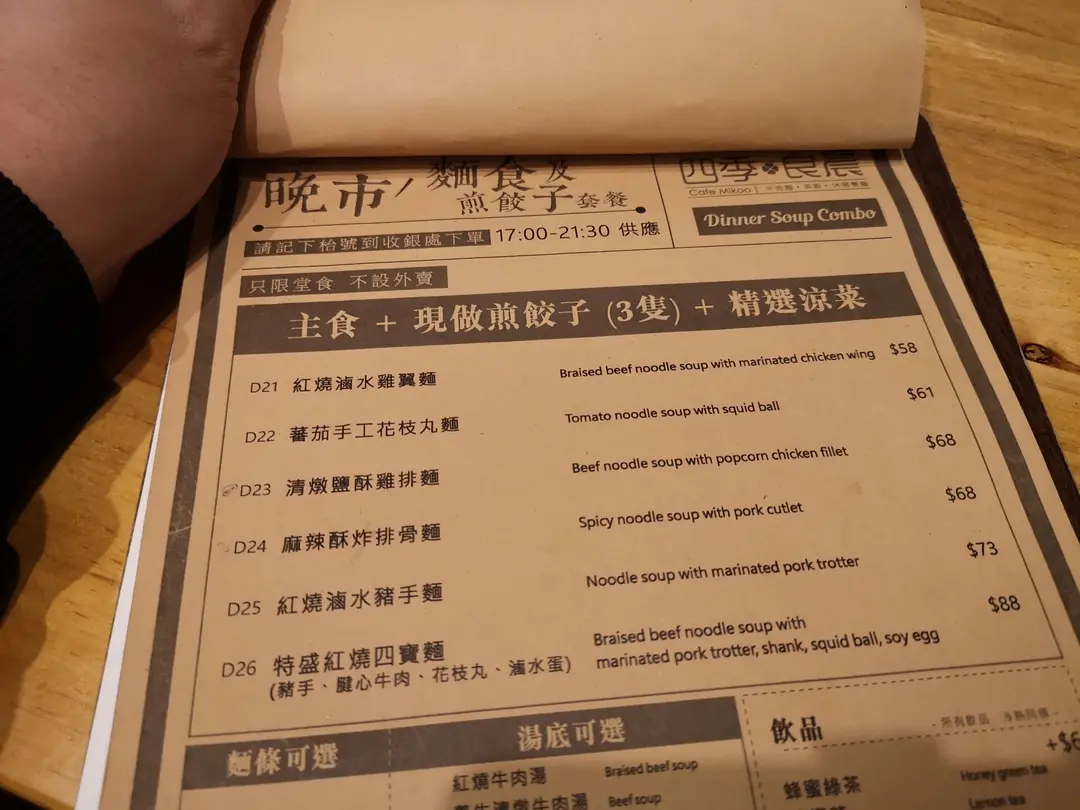 晚市/ 麵食及
煎餃子套餐
四季•良晨
Cafe Mikoo
Dinner Soup Combo
請記下枱號到收銀處下單 17:00-21:30 供應
只限堂食 不設外賣
主食 + 現做煎餃子 (3隻) + 精選涼菜
D21 紅燒滷水雞翼麵 Braised beef noodle soup with marinated chicken wing $58
D22 蕃茄手工花枝丸麵 Tomato noodle soup with squid ball $61
D23 清燉鹽酥雞排麵 Beef noodle soup with popcorn chicken fillet $68
D24 麻辣酥炸排骨麵 Spicy noodle soup with pork cutlet $68
D25 紅燒滷水豬手麵 Noodle soup with marinated pork trotter $73
D26 特盛紅燒四寶麵 Braised beef noodle soup with $88
(豬手、腱心牛肉、花枝丸、滷水蛋) marinated pork trotter, shank, squid ball, soy egg
麵條可選
湯底可選
紅燒牛肉湯 Braised beef soup
Beef soup
飲品
蜂蜜綠茶 Honey green tea
Lemon tea